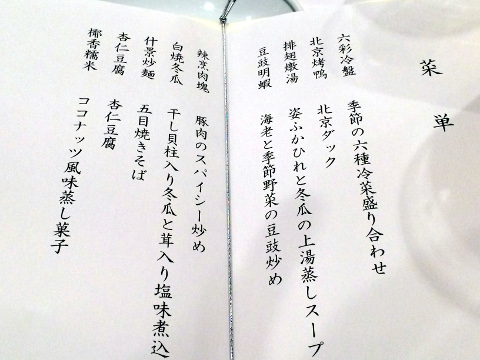 菜単
六彩冷盤
季節の六種冷菜盛り合わせ
北京烤鴨
北京ダック
排翅燉湯
姿ふかひれと冬瓜の上湯蒸しスープ
豆豉明蝦
海老と季節野菜の豆豉炒め
辣烹肉塊
豚肉のスパイシー炒め
白焼冬瓜
干し貝柱入り冬瓜と茸入り塩味煮込
什景炒麺
五目焼きそば
杏仁豆腐
杏仁豆腐
椰香糯米
ココナッツ風味蒸し菓子